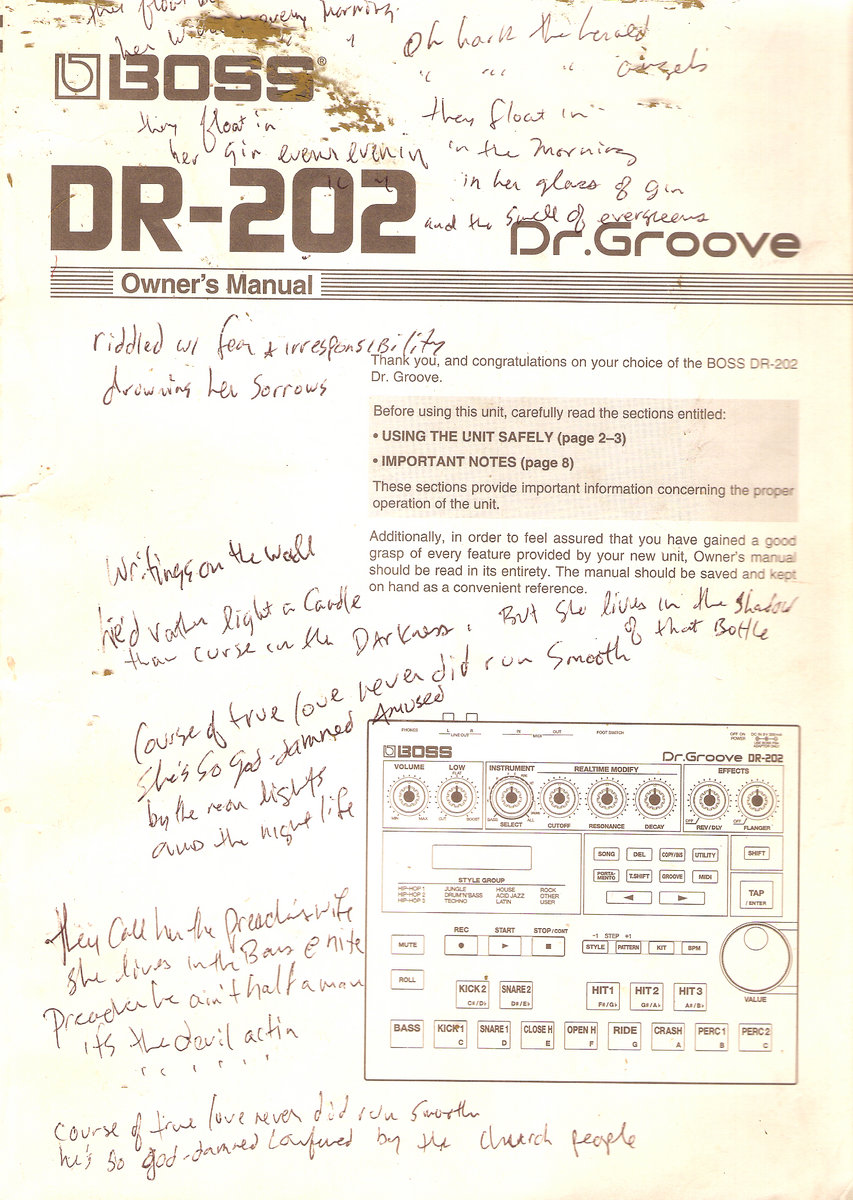 they float in
her gin every morning
Oh hark the herald
" " " angels
BOSS®
they float in
they float in
her gin even evenin
in the morning
in her glass of gin
and the smell of evergreens
DR-202
Dr.Groove
Owner's Manual
riddled w/ fear & irresponsibility
drowning her sorrows
Thank you, and congratulations on your choice of the BOSS DR-202
Dr. Groove.
Before using this unit, carefully read the sections entitled:
• USING THE UNIT SAFELY (page 2–3)
• IMPORTANT NOTES (page 8)
These sections provide important information concerning the proper
operation of the unit.
Additionally, in order to feel assured that you have gained a good
grasp of every feature provided by your new unit, Owner's manual
should be read in its entirety. The manual should be saved and kept
on hand as a convenient reference.
Writings on the wall
he'd rather light a Candle
than curse in the Darkness. But she lives in the shadow
of that Bottle
Course of true love never did run smooth
She's so god-damned Amused
by the neon lights
and the night life
they call her the preacher's wife
she lives in the Bars @ nite
Preacher he ain't half a man
it's the devil actin
" " " "
course of true love never did run smooth
he's so god-damned confused by the church people
PHONES L R LINE OUT IN MIDI OUT FOOT SWITCH OFF ON POWER DC IN 9V
BOSS
Dr.Groove DR-202
VOLUME LOW INSTRUMENT REALTIME MODIFY EFFECTS
FLAT
MIN MAX CUT BOOST BASS ALL OFF OFF
SELECT CUTOFF RESONANCE DECAY REV/DLY FLANGER
SONG DEL COPY/INS UTILITY SHIFT
PORTAMENTO T.SHIFT GROOVE MIDI
STYLE GROUP
HIP-HOP 1 JUNGLE HOUSE ROCK
HIP-HOP 2 DRUM'N'BASS ACID JAZZ OTHER
HIP-HOP 3 TECHNO LATIN USER
TAP
/ ENTER
REC START STOP/CONT −1 STEP +1
MUTE STYLE PATTERN KIT BPM
ROLL
VALUE
KICK 2 SNARE2 HIT 1 HIT 2 HIT 3
C#/D♭ D#/E♭ F#/G♭ G#/A♭ A#/B♭
BASS KICK 1 SNARE 1 CLOSE H OPEN H RIDE CRASH PERC 1 PERC 2
C D E F G A B C